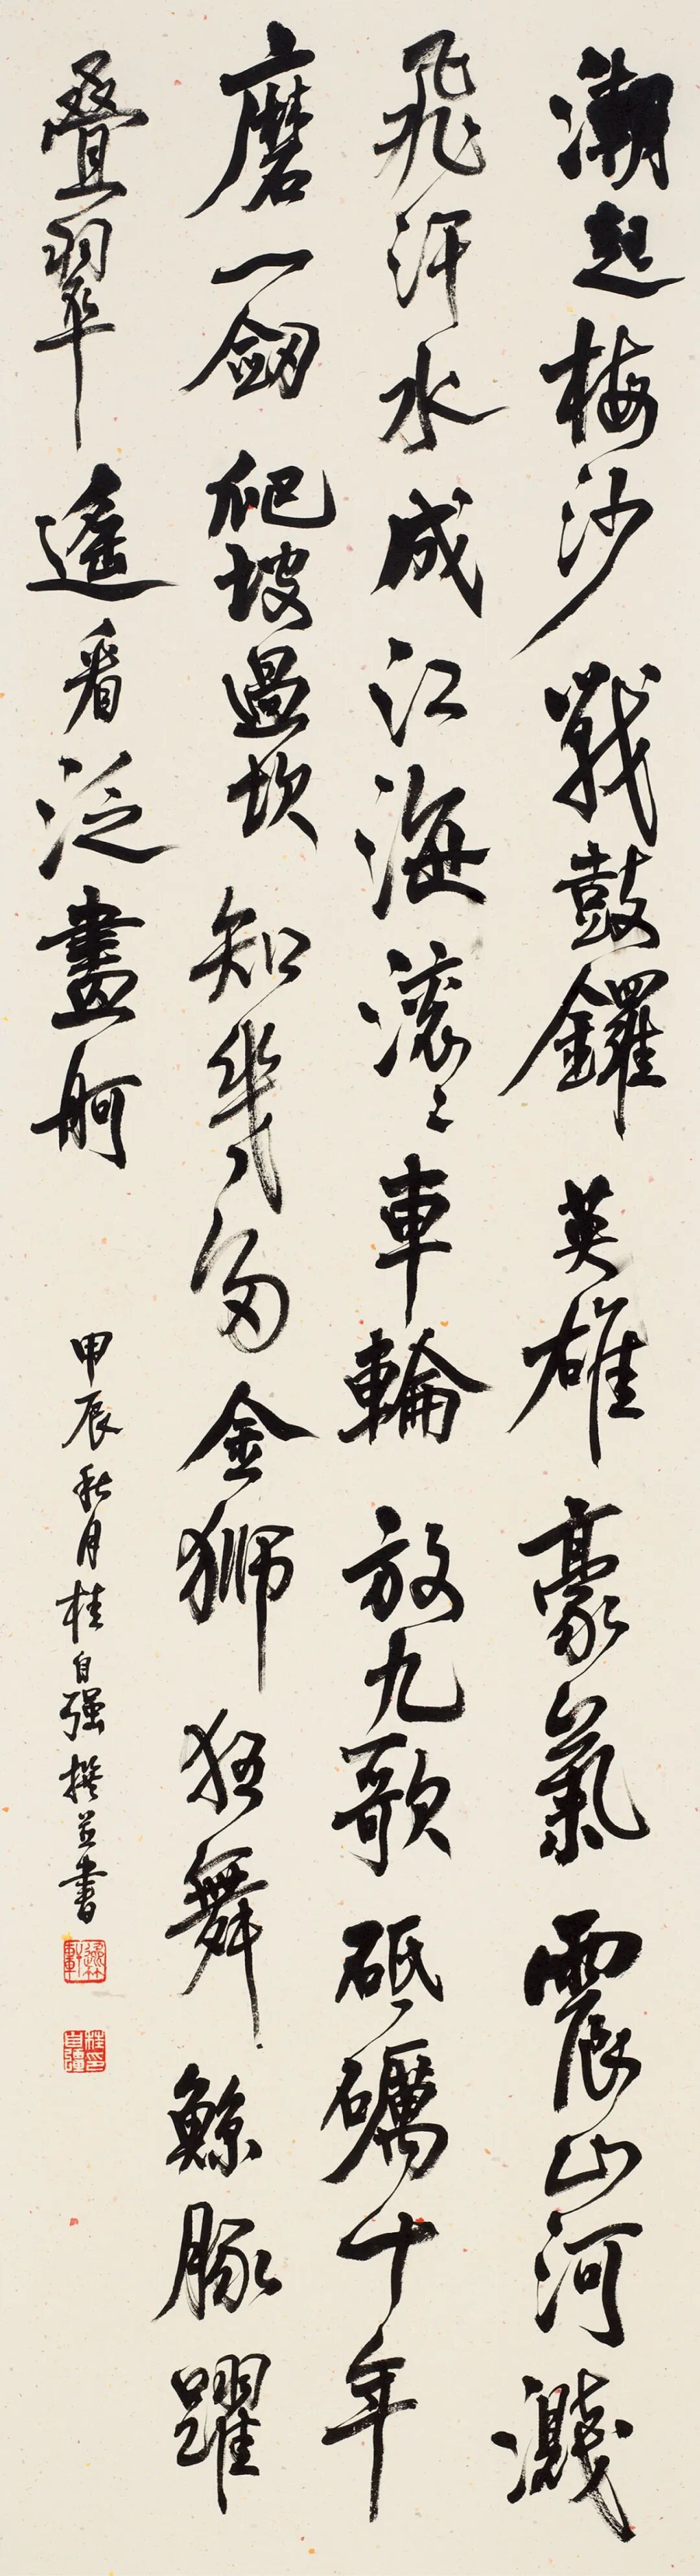 潮起梅沙戰鼓鑼英雄豪氣震山河濺
飛汗水成江海滚〻車輪放九歌砥礪十年
磨一劔爬坡過坎知幾多金狮狂舞鯨豚躍
叠翠遙看泛畫舸
甲辰秋月桂自强撰並書
桂自強印